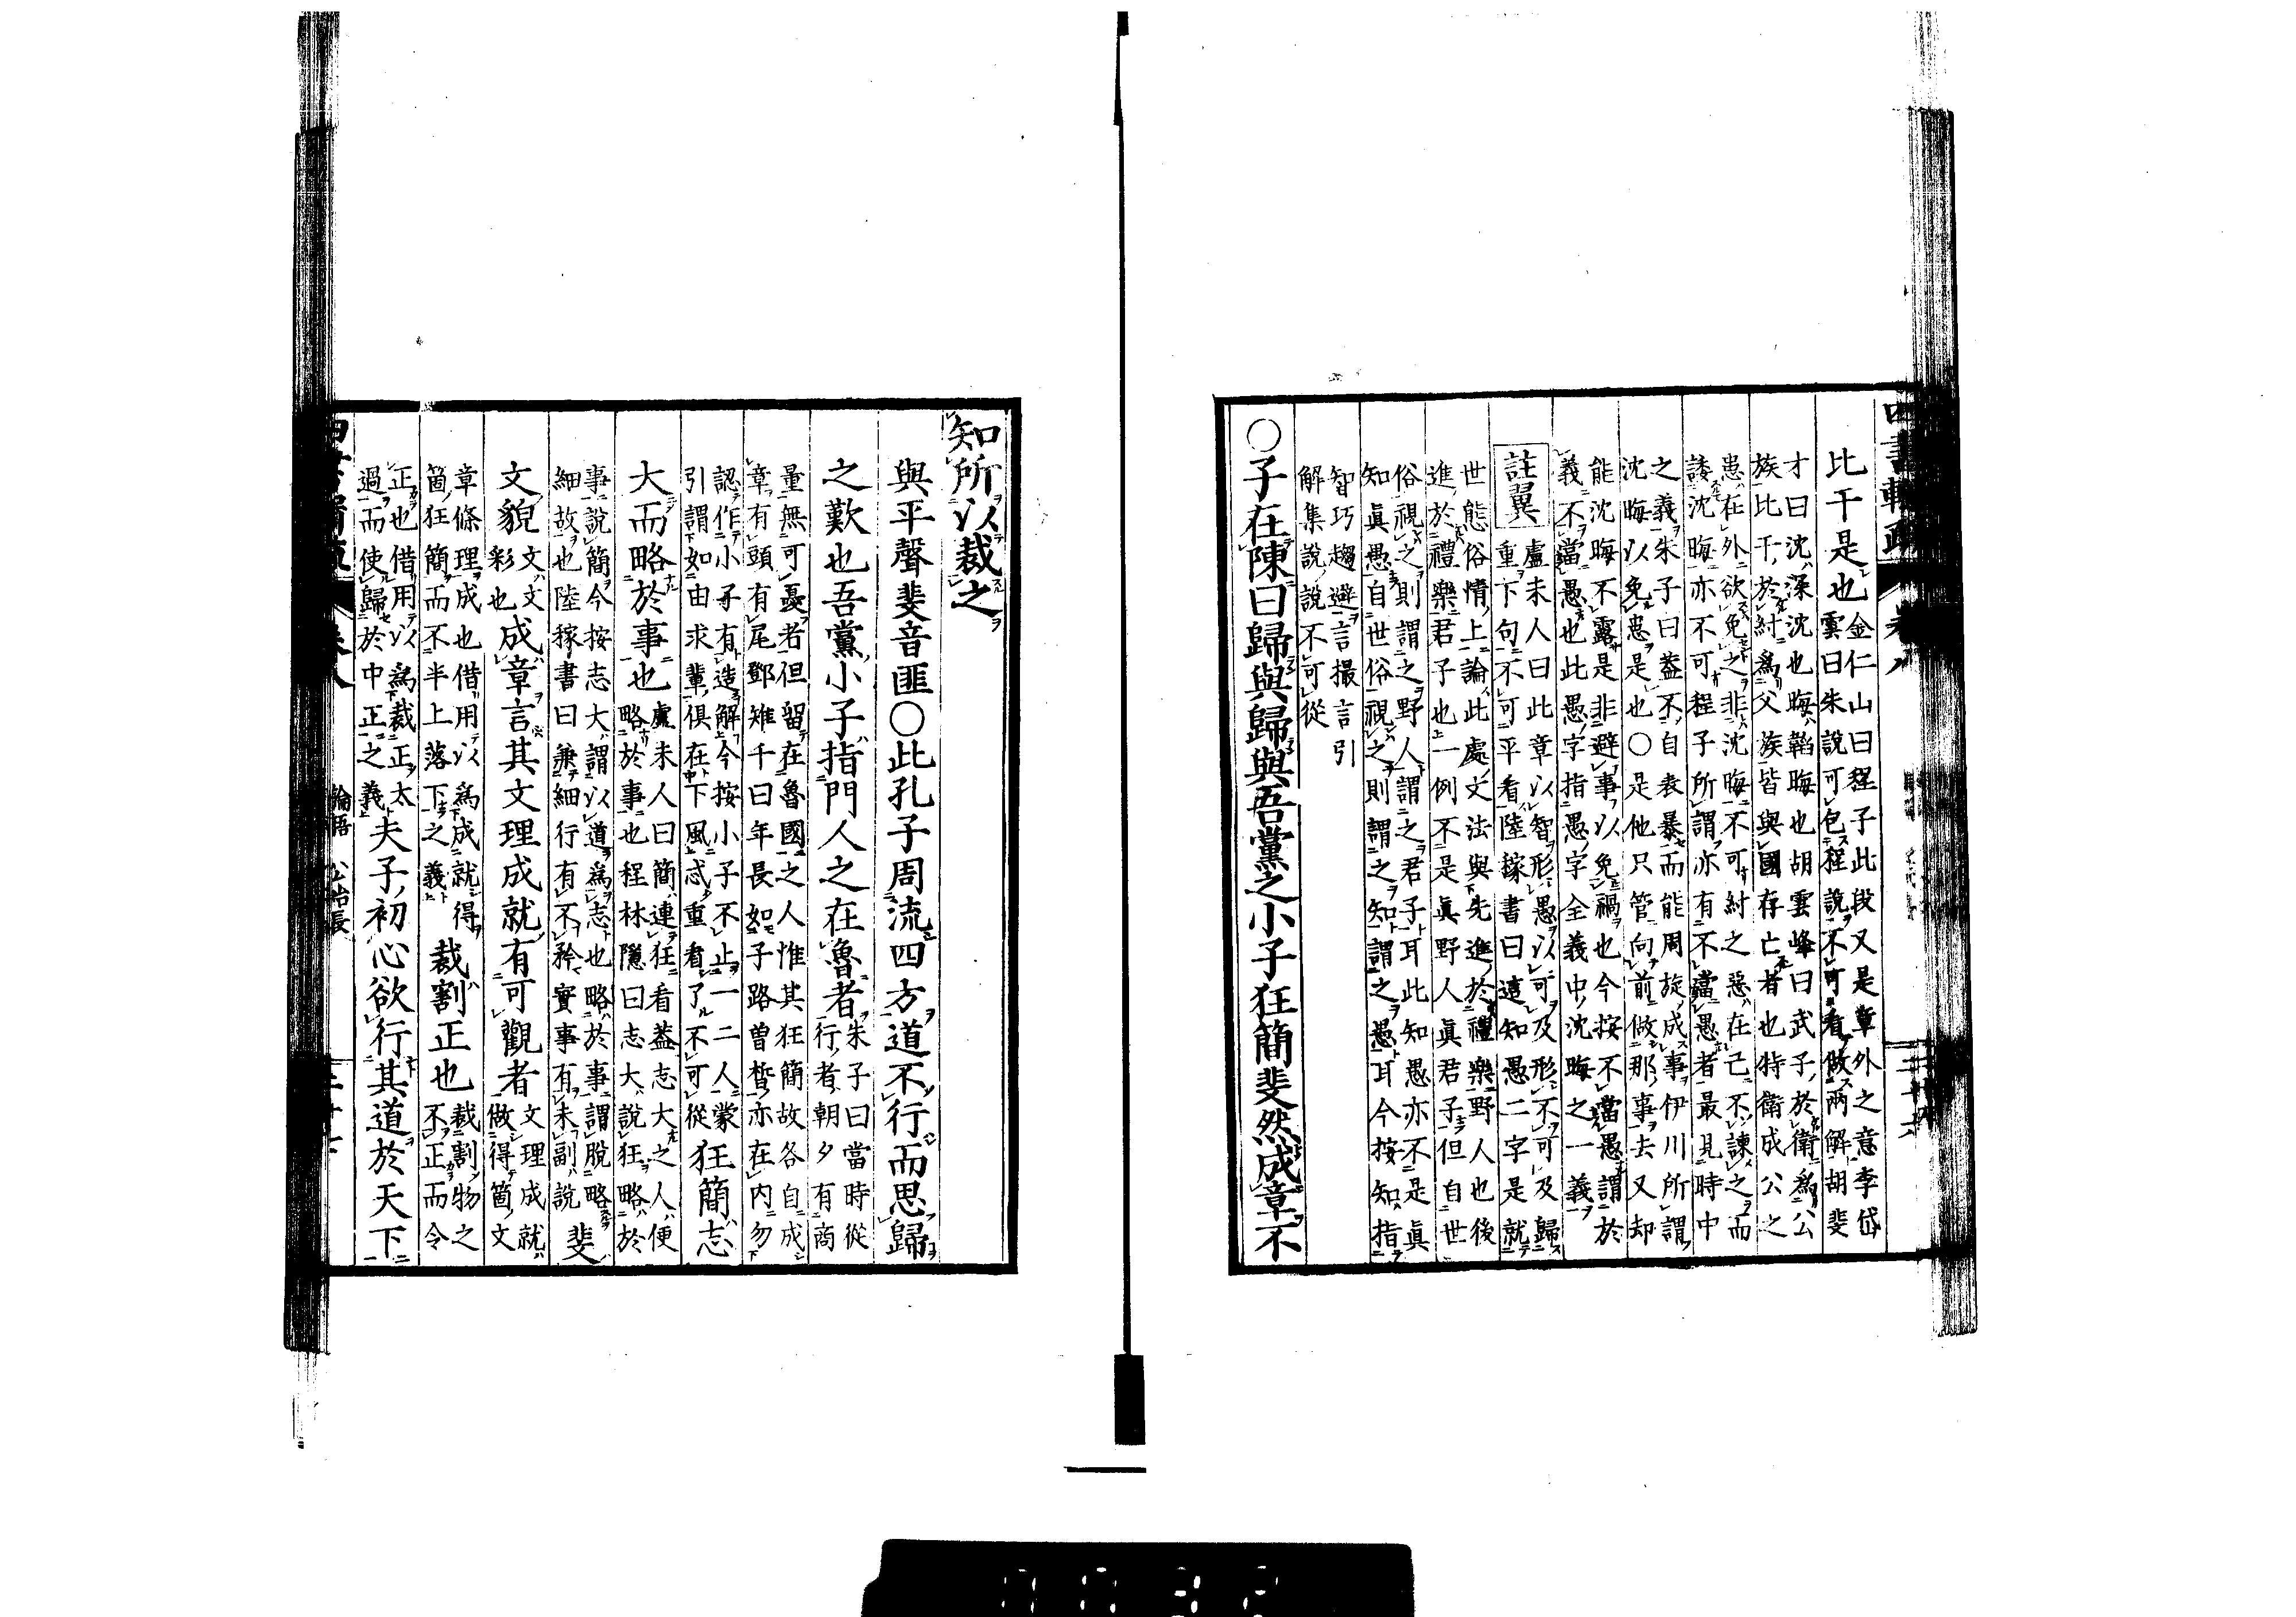 四書輯疏 卷八
比干是也 金仁山曰程子此段又是章外之意李岱
雲曰朱說可包程說不可看做兩解胡斐
才曰沈深沈也晦韜晦也胡雲峰曰武子於衛爲公
族比干於紂爲父族皆與國存亡者也特衛成公之
患在外欲免之非沈晦不可紂之惡在己不諫之而
諉沈晦亦不可程子所謂亦有不當愚者最見時中
之義朱子曰蓋不自表暴而能周旋成事伊川所謂
沈晦以免患是也○是他只管向前做那事去又却
能沈晦不露是非避事以免禍也今按不當愚謂於
義不當愚也此愚字指愚字全義中沈晦之一義
註翼 盧未人曰此章以智形愚以可及形不可及歸
重下句不可平看陸稼書曰這知愚二字是就
世態俗情上論此處文法與先進於禮樂野人也後
進於禮樂君子也一例不是眞野人眞君子但自世
俗視之則謂之野人謂之君子耳此知愚亦不是眞
知眞愚自世俗視之則謂之知謂之愚耳今按知指
智巧趨避言撮言引
解集說說不可從
○子在陳曰歸與歸與吾黨之小子狂簡斐然成章不
知所以裁之
與平聲斐音匪○此孔子周流四方道不行而思歸
之歎也吾黨小子指門人之在魯者 朱子曰當時從
行者朝夕有商
量無可憂者但留在魯國之人惟其狂簡故各自成
章有頭有尾鄧雉千曰年長如子路曾皙亦在内勿
認作小子有造解今按小子不止一二人蒙
引謂如由求輩俱在下風忒重看了不可從 狂簡志
大而略於事也 盧未人曰簡連狂看蓋志大之人便
略於事也程林隱曰志大說狂略於
事說簡今按志大謂以道爲志也略於事謂脫略
細故也陸稼書曰兼細行有不矜實事有未副說 斐
文貌 文文
彩也 成章言其文理成就有可觀者 文理成就
做得箇文
章條理成也借用以爲成就得
箇狂簡而不半上落下之義 裁割正也 裁割物之
不正而令
正也借用以爲裁正太
過而使歸於中正之義 夫子初心欲行其道於天下
論語 公冶長